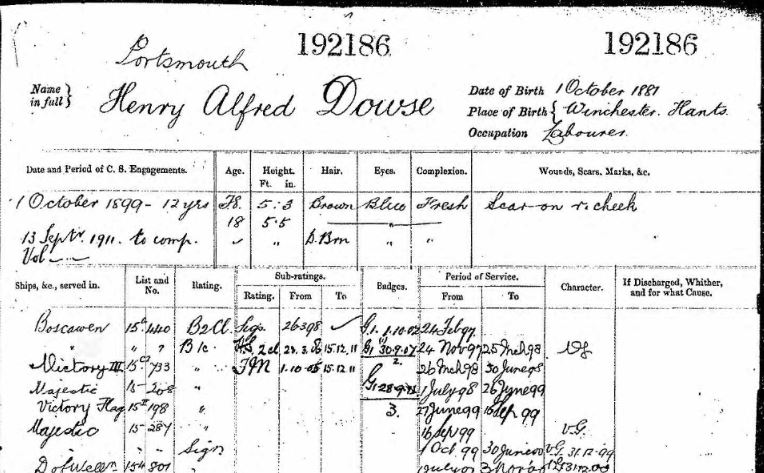 Portsmouth 192186 192186
Name in full } Henry Alfred Dowse
Date of Birth 1 October 1881
Place of Birth { Winchester. Hants.
Occupation Labourer.
Date and Period of C. S. Engagements. Age. Height. Ft. in. Hair. Eyes. Complexion. Wounds, Scars, Marks, &c.
1 October 1899 - 12 yrs 5.3 Brown Blue Fresh Scar on r. cheek
18 5.5
13 Septr. 1911. to comp. " D. Brn " "
Vol
Ships, &c., served in. List and No. Rating. Sub-ratings. Rating. From To Badges. Period of Service. From To Character. If Discharged, Whither, and for what Cause.
Boscawen 15 440 B2Cl. Sigs. 26.3.98 G.1. 1.10.02 24 Feb 97
" " " B 1c. 2cl. 15.12.11 G1 30.9.07 24 Nov 97 25 Mch 98 VG
2.
Victory 15 733 " 1.10.05 15.12.11 26 Mch 98 30 June 98
Majestic 15 208 " 1 July 98 26 June 99
Victory Flag 15 198 " 3. 27 June 99 15 Sep 99
Majestic 15 287 " 16 Sep 99 V.G.
" " Sign 1 Oct. 99 30 June 00 V.G. 31.12.99
15